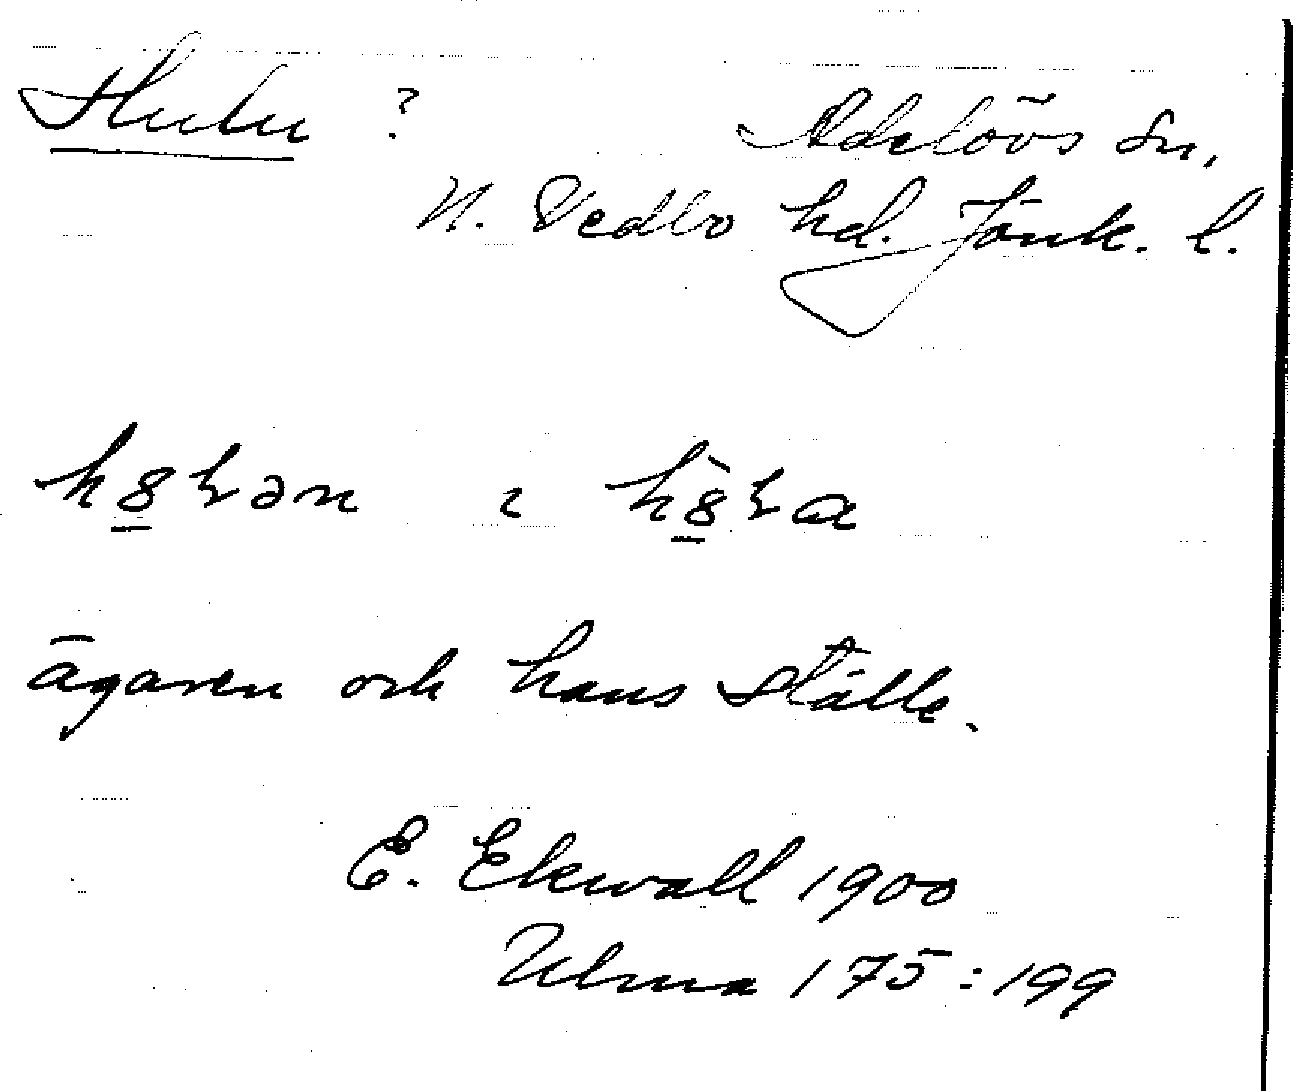 Hulu ? Adelövs sn,
N. Vedbo hd. Jönk. l.
ägaren och hans ställe.
E. Ekwall 1900
Ulma 175:199